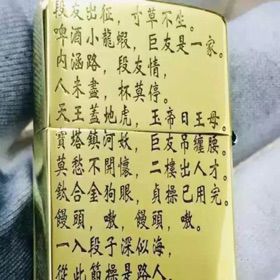 段友出征，寸草不生。
啤酒小龍蝦，巨友是一家。
內涵路，段友情，
人未盡，杯莫停。
天王蓋地虎，玉帝日王母。
寶塔鎮河妖，巨友吊纏腰。
莫愁不開懷，二樓出人才。
鈦合金狗眼，貞操已用完。
饅頭，嗷，饅頭，嗷。
一入段子深似海，
從此節操是路人。